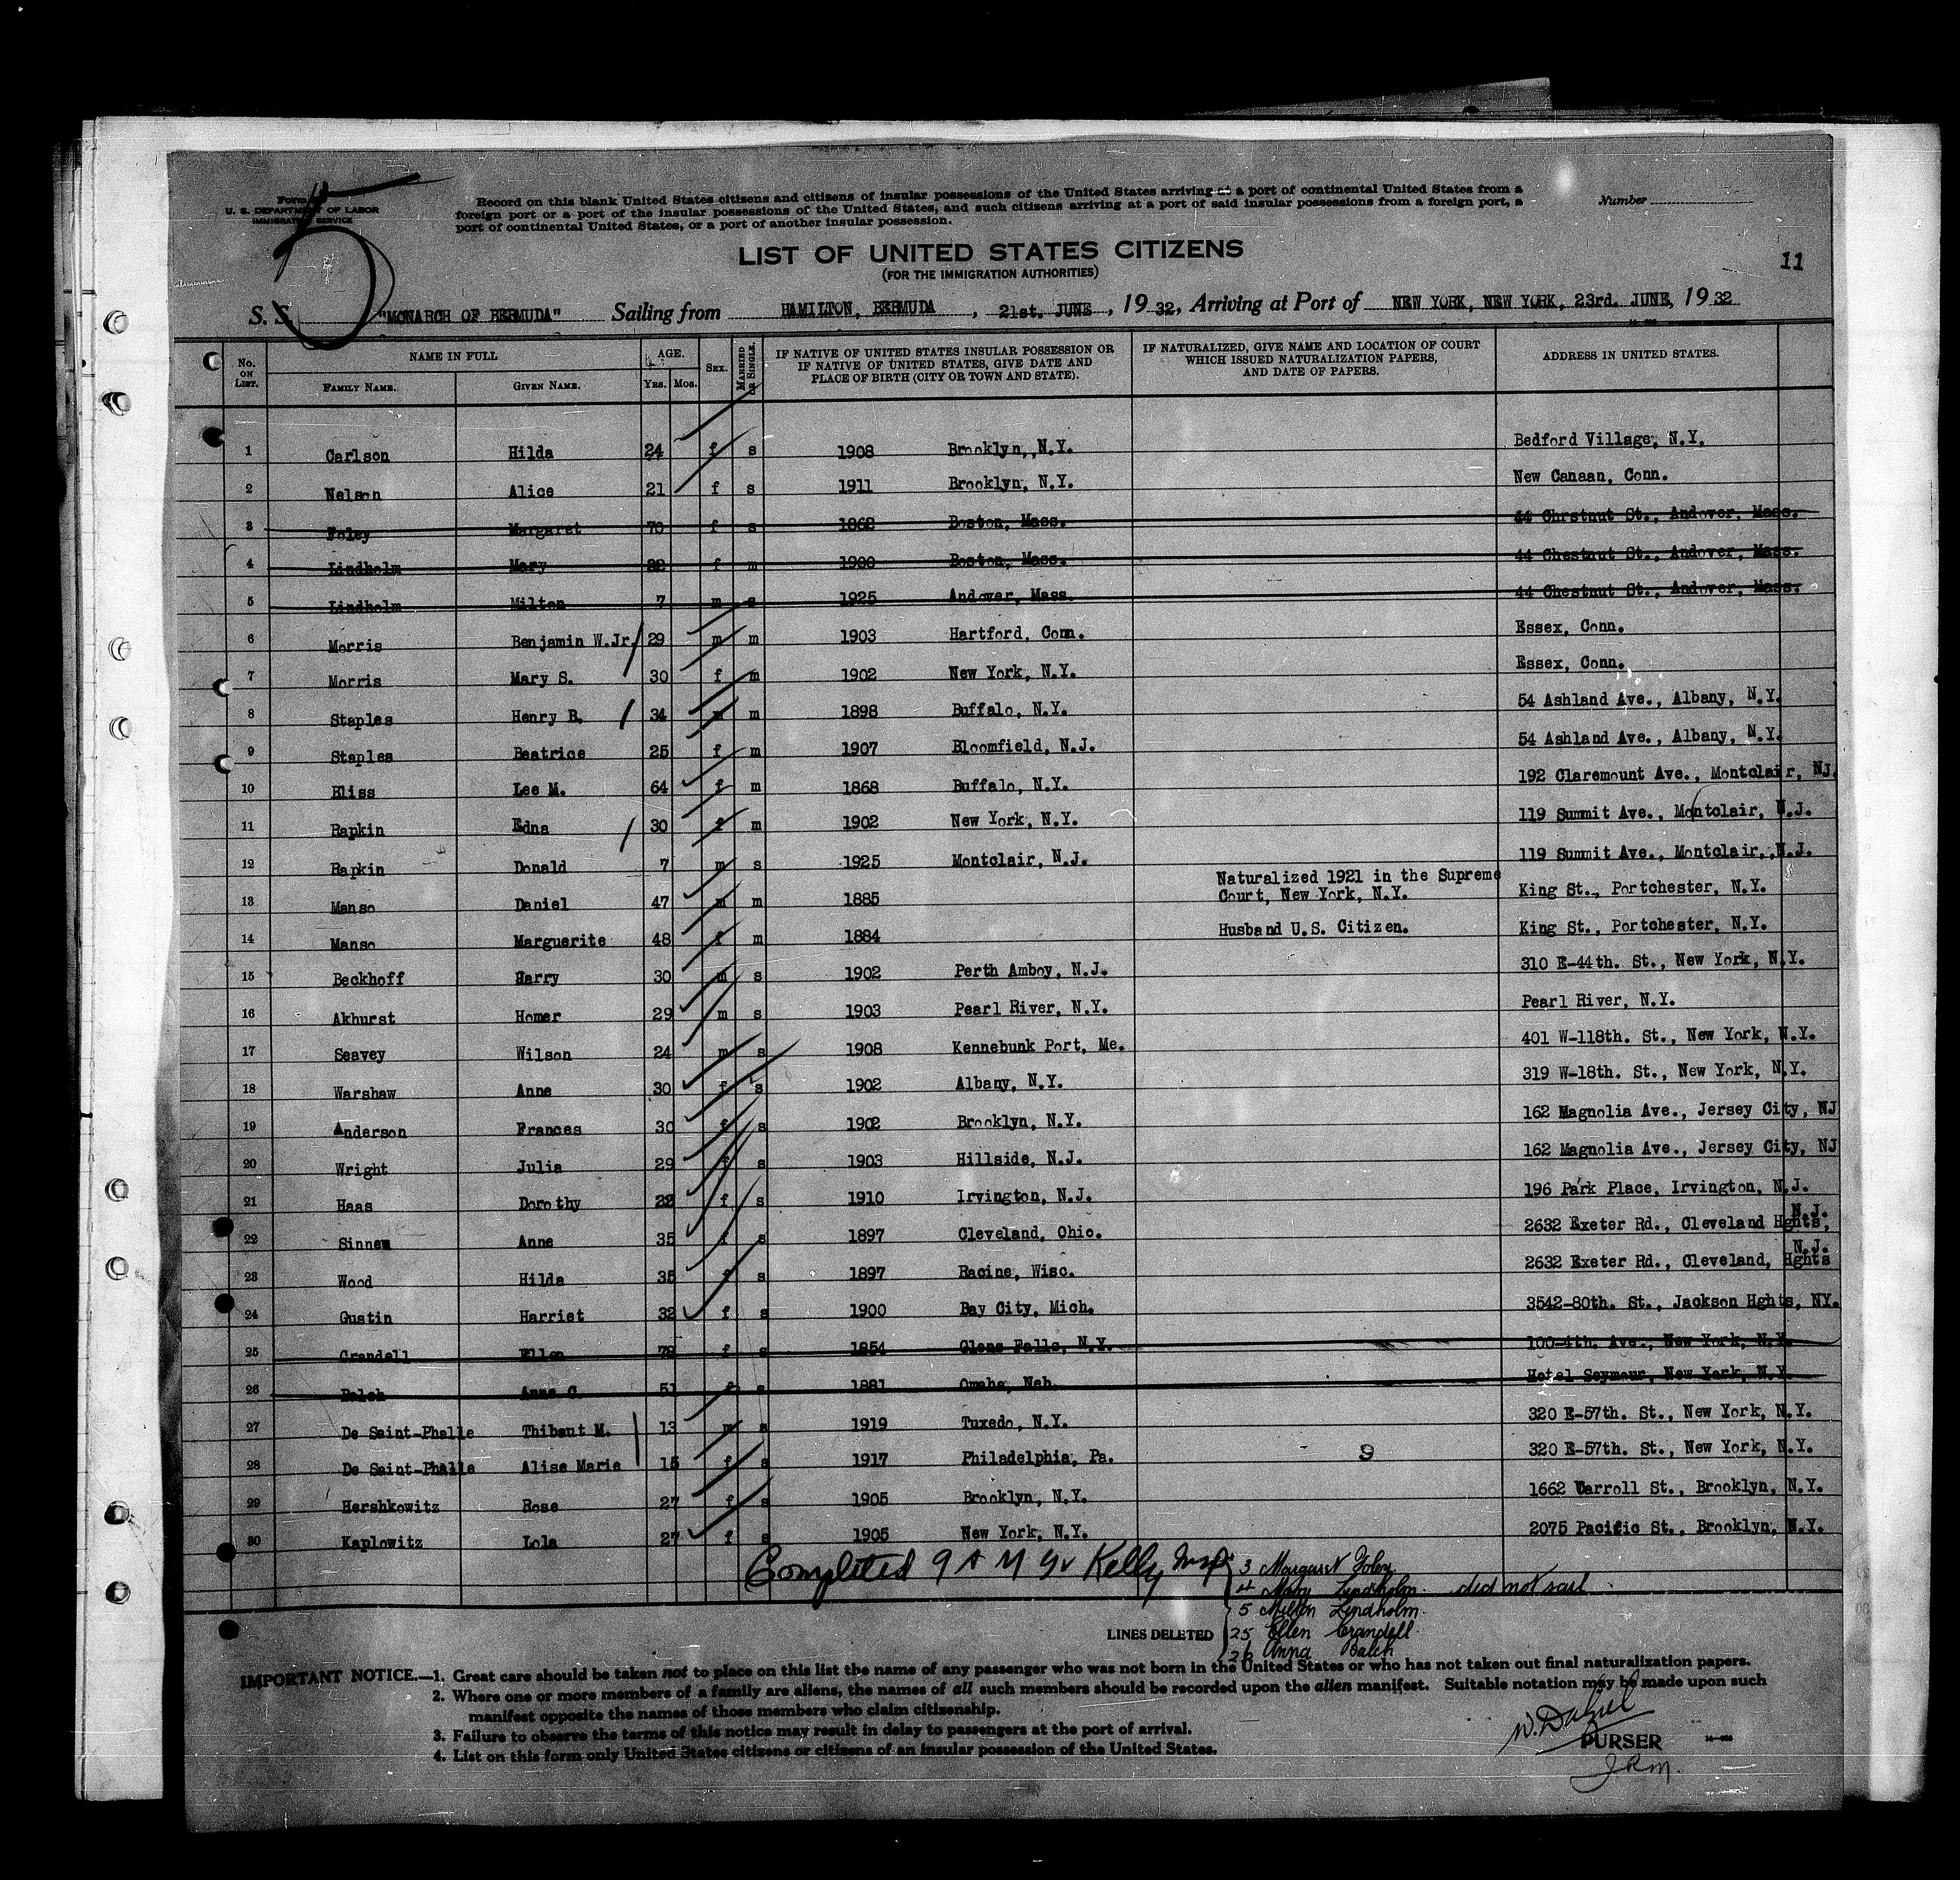 Form
U. S. DEPARTMENT OF LABOR
IMMIGRATION SERVICE
Record on this blank United States citizens and citizens of insular possessions of the United States arriving at a port of continental United States from a
foreign port or a port of the insular possessions of the United States, and such citizens arriving at a port of said insular possessions from a foreign port, a
port of continental United States, or a port of another insular possession.
Number
5
LIST OF UNITED STATES CITIZENS
(FOR THE IMMIGRATION AUTHORITIES)
11
S. S. "MONARCH OF BERMUDA" Sailing from HAMILTON, BERMUDA, 21st. JUNE, 1932, Arriving at Port of NEW YORK, NEW YORK, 23rd. JUNE, 1932
No. ON LIST. NAME IN FULL FAMILY NAME. GIVEN NAME. AGE. Yrs. Mos. SEX. MARRIED OR SINGLE. IF NATIVE OF UNITED STATES INSULAR POSSESSION OR IF NATIVE OF UNITED STATES, GIVE DATE AND PLACE OF BIRTH (CITY OR TOWN AND STATE). IF NATURALIZED, GIVE NAME AND LOCATION OF COURT WHICH ISSUED NATURALIZATION PAPERS, AND DATE OF PAPERS. ADDRESS IN UNITED STATES.
1 Carlson Hilda 24 f s 1908 Brooklyn,,N.Y. Bedford Village, N.Y.
2 Nelson Alice 21 f s 1911 Brooklyn, N.Y. New Canaan, Conn.
3 Foley Margaret 70 f s 1862 Boston, Mass. 44 Chrstnut St., Andover, Mass.
4 Lindholm Mary 32 f m 1900 Boston, Mass. 44 Chestnut St., Andover, Mass.
5 Lindholm Milton 7 m s 1925 Andover, Mass. 44 Chestnut St., Andover, Mass.
6 Morris Benjamin W.Jr. 29 m m 1903 Hartford, Conn. Essex, Conn.
7 Morris Mary S. 30 f m 1902 New York, N.Y. Essex, Conn.
8 Staples Henry B. 34 m m 1898 Buffalo, N.Y. 54 Ashland Ave., Albany, N.Y.
9 Staples Beatrice 25 f m 1907 Bloomfield, N.J. 54 Ashland Ave., Albany, N.Y.
10 Bliss Lee M. 64 f m 1868 Buffalo, N.Y. 192 Claremount Ave., Montclair, NJ.
11 Rapkin Edna 30 f m 1902 New York, N.Y. 119 Summit Ave., Montclair, N.J.
12 Rapkin Donald 7 m s 1925 Montclair, N.J. 119 Summit Ave., Montclair, N.J.
13 Manso Daniel 47 m m 1885 Naturalized 1921 in the Supreme Court, New York, N.Y. King St., Portchester, N.Y.
14 Manso Marguerite 48 f m 1884 Husband U.S. Citizen. King St., Portchester, N.Y.
15 Beckhoff Harry 30 m s 1902 Perth Amboy, N.J. 310 E-44th. St., New York, N.Y.
16 Akhurst Homer 29 m s 1903 Pearl River, N.Y. Pearl River, N.Y.
17 Seavey Wilson 24 m s 1908 Kennebunk Port, Me. 401 W-118th. St., New York, N.Y.
18 Warshaw Anne 30 f s 1902 Albany, N.Y. 319 W-18th. St., New York, N.Y.
19 Anderson Frances 30 f s 1902 Brooklyn, N.Y. 162 Magnolia Ave., Jersey City, NJ
20 Wright Julia 29 f s 1903 Hillside, N.J. 162 Magnolia Ave., Jersey City, NJ
21 Haas Dorothy 22 f s 1910 Irvington, N.J. 196 Park Place, Irvington, N.J.
22 Sinnem Anne 35 f s 1897 Cleveland, Ohio. 2632 Exeter Rd., Cleveland Hghts, N.J.
23 Wood Hilda 35 f s 1897 Racine, Wisc. 2632 Exeter Rd., Cleveland, Hghts N.J.
24 Gustin Harriet 32 f s 1900 Bay City, Mich. 3542-80th. St., Jackson Hghts, NY.
25 Crandell Ellen 78 f s 1854 Glens Falls, N.Y. 100-4th. Ave., New York, N.Y.
26 Balch Anna C. 51 f s 1881 Omaha, Neb. Hotel Seymour, New York, N.Y.
27 De Saint-Phalle Thibaut M. 13 m s 1919 Tuxedo, N.Y. 320 E-57th. St., New York, N.Y.
28 De Saint-Phalle Alise Marie 15 f s 1917 Philadelphia, Pa. 9 320 E-57th. St., New York, N.Y.
29 Hershkowitz Rose 27 f s 1905 Brooklyn, N.Y. 1662 Carroll St., Brooklyn, N.Y.
30 Kaplowitz Lola 27 f s 1905 New York, N.Y. 2075 Pacific St., Brooklyn, N.Y.
Completed 9 A M Kelly Insp
3 Margaret Foley
4 Mary Lindholm did not sail
5 Milton Lindholm.
LINES DELETED 25 Ellen Crandell.
26 Anna Balch
IMPORTANT NOTICE.—1. Great care should be taken not to place on this list the name of any passenger who was not born in the United States or who has not taken out final naturalization papers.
2. Where one or more members of a family are aliens, the names of all such members should be recorded upon the alien manifest. Suitable notation may be made upon such
manifest opposite the names of those members who claim citizenship.
3. Failure to observe the terms of this notice may result in delay to passengers at the port of arrival.
4. List on this form only United States citizens or citizens of an insular possession of the United States.
W. Dalziel
PURSER
J.R.M.